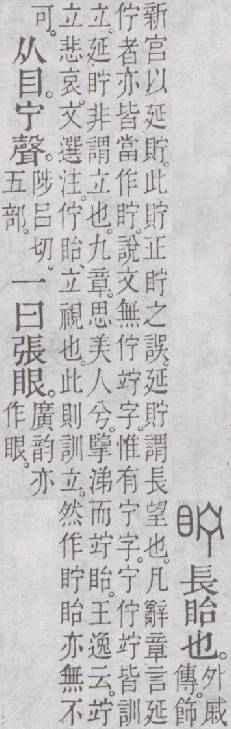 眝 長眙也。外戚傳飾
新宫以延貯。此貯正眝之誤。延眝謂長望也。凡辭章言延
佇者亦皆當作眝。說文無佇竚字。惟有宁字。宁佇竚皆訓
立。延眝非謂立也。九章。思美人兮。擥涕而竚眙。王逸云。竚
立悲哀。文選注。佇眙立視也。此則訓立。然作眝眙亦無不
可。从目。宁聲。陟呂切。五部。一曰張眼。廣韵亦作眼。